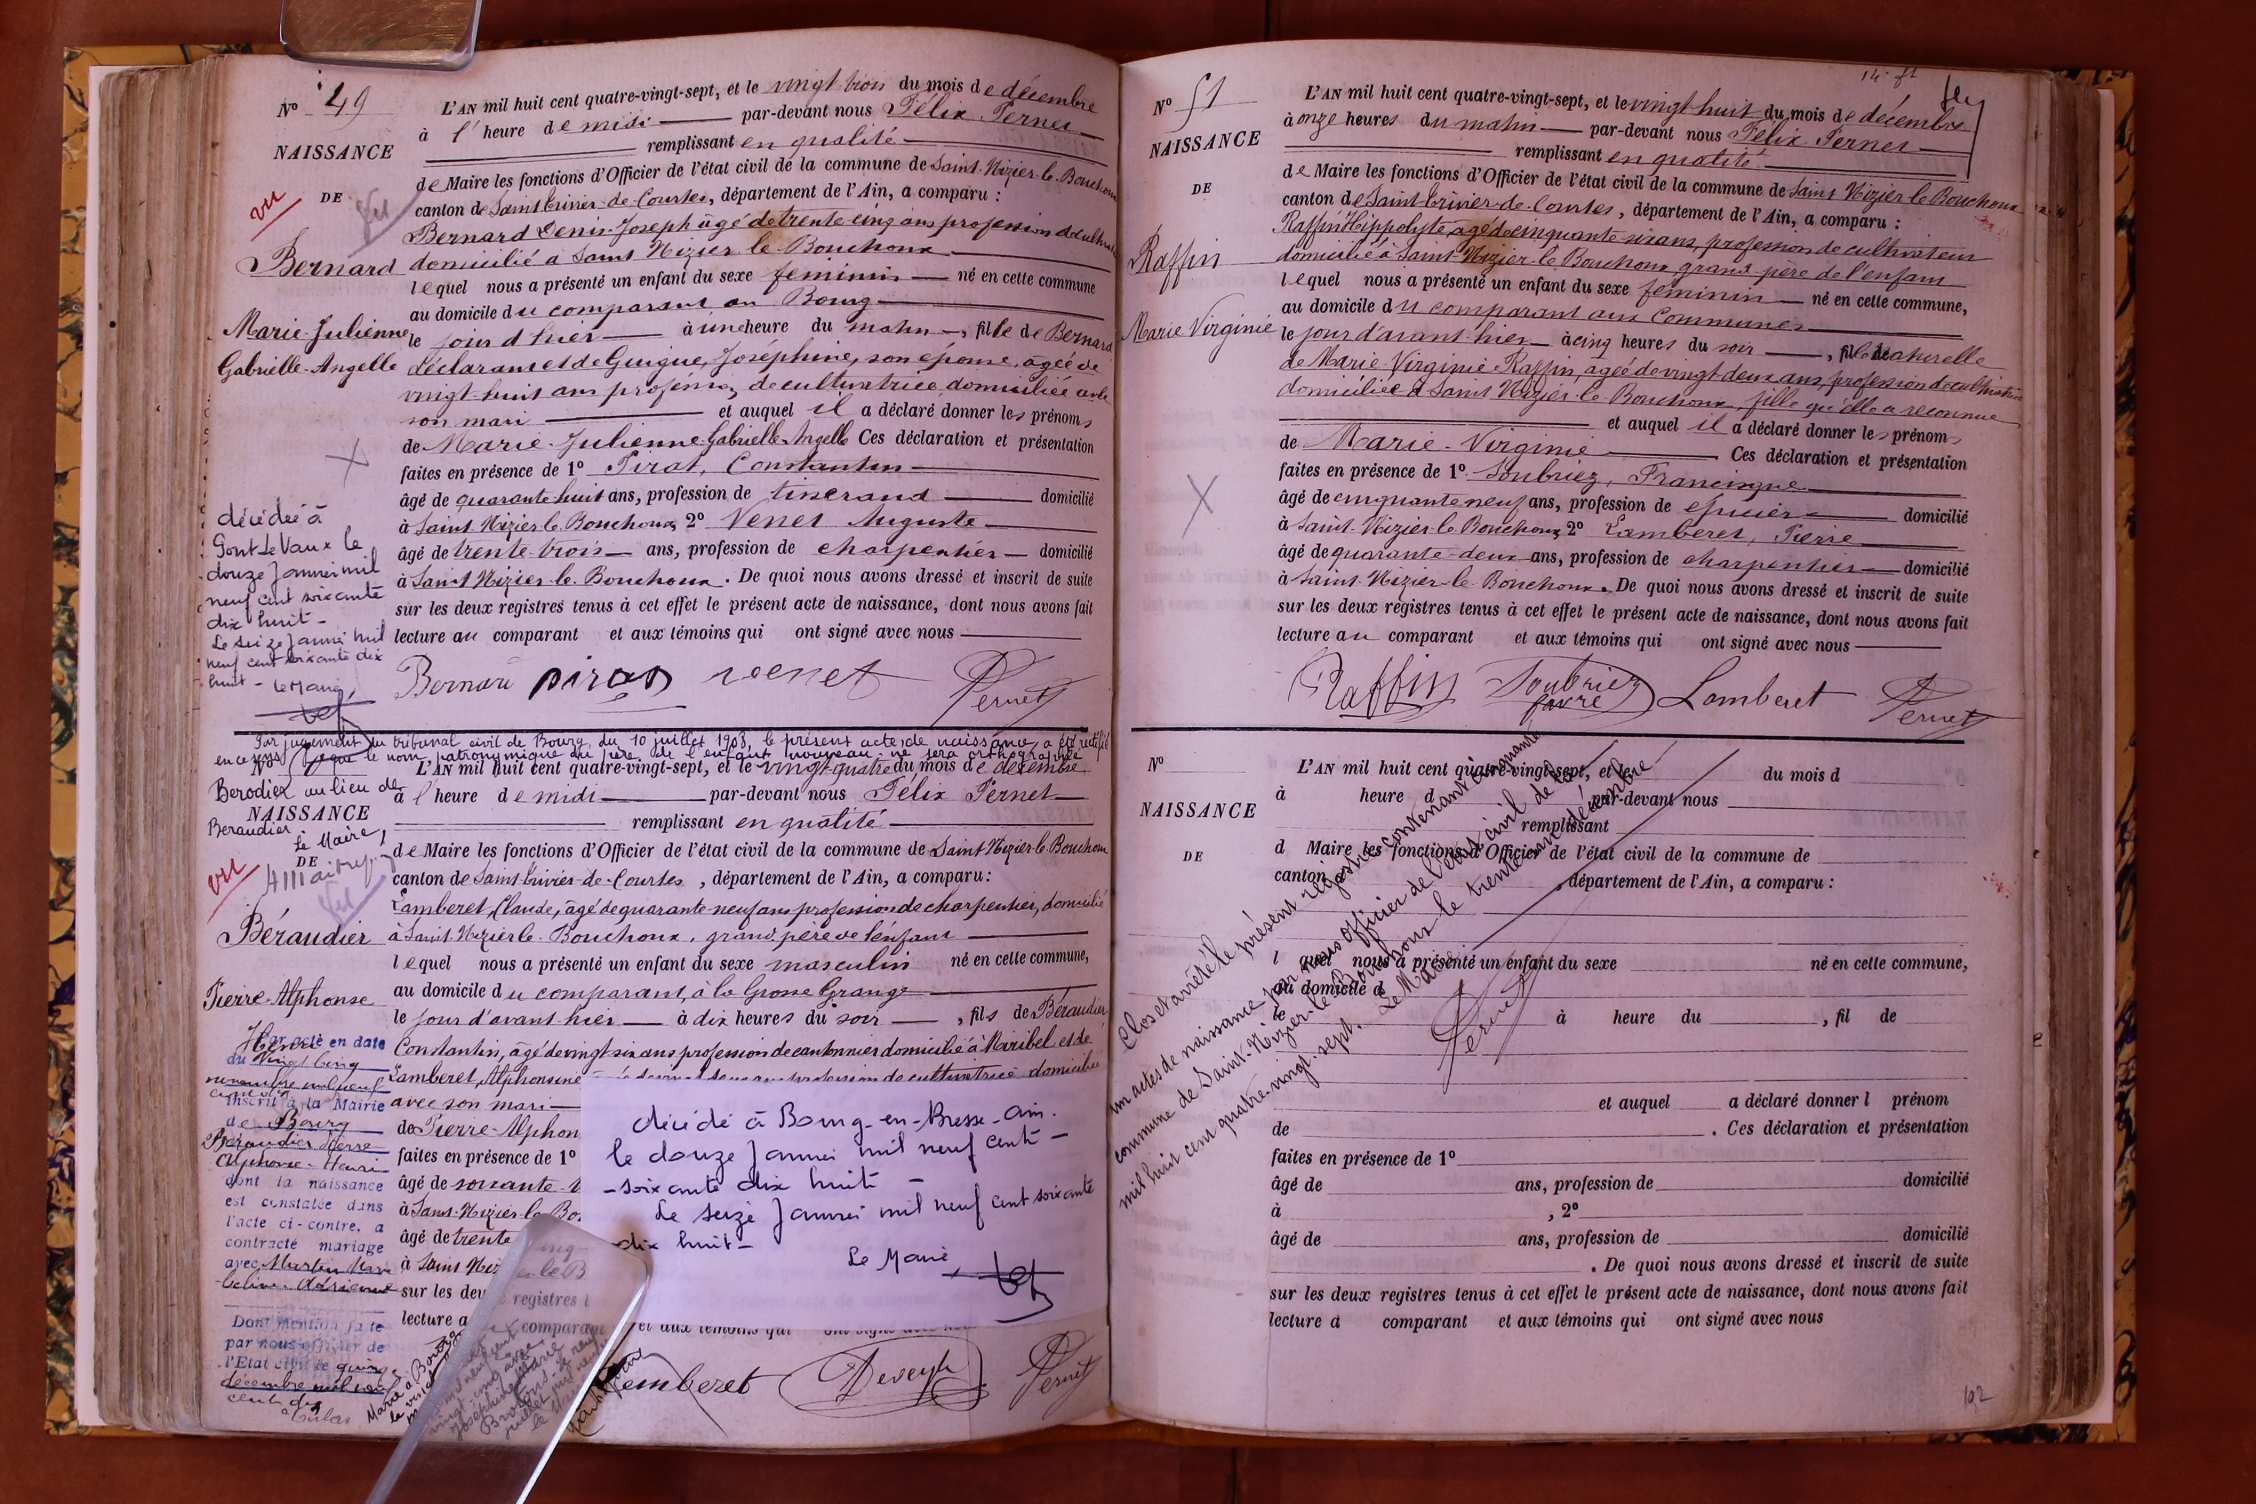 N° 49
NAISSANCE
DE
vu
Bernard
Marie-Julienne
Gabrielle-Angelle
L'AN mil huit cent quatre-vingt-sept, et le vingt trois du mois de décembre
à l'heure de midi par-devant nous Félix Pernet
remplissant en qualité
de Maire les fonctions d'Officier de l'état civil de la commune de Saint-Nizier-le-Bouchoux
canton de Saint-Trivier-de-Courtes, département de l'Ain, a comparu :
Bernard Denis-Joseph âgé de trente cinq ans profession de cultivateur
domicilié à Saint Nizier-le-Bouchoux
lequel nous a présenté un enfant du sexe féminin né en cette commune
au domicile du comparant au Bourg
le jour d'hier à une heure du matin, fille de Bernard
déclarant et de Guigue, Joséphine, son épouse, agée de
vingt-huit ans profession de cultivatrice domiciliée avec
son mari et auquel il a déclaré donner les prénoms
de Marie-Julienne-Gabrielle-Angelle Ces déclaration et présentation
faites en présence de 1° Pirat, Constantin
âgé de quarante huit ans, profession de tisserand domicilié
à Saint-Nizier-le-Bouchoux, 2° Venet Auguste
âgé de trente-trois ans, profession de charpentier domicilié
à Saint Nizier-le-Bouchoux. De quoi nous avons dressé et inscrit de suite
sur les deux registres tenus à cet effet le présent acte de naissance, dont nous avons fait
lecture au comparant et aux témoins qui ont signé avec nous
Bernard Pirat Venet Pernet
décédée à
Pont de Vaux le
douze Janvier mil
neuf cent soixante
dix huit -
Le seize Janvier mil
neuf cent soixante dix
huit - Le Maire,
Par jugement du tribunal civil de Bourg, du 10 juillet 1908, le présent acte de naissance a été rectifié
en ce sens que le nom patronymique du père de l'enfant nouveau-né sera orthographié
Berodier au lieu de
Beraudier
Le Maire,
N° 50
NAISSANCE
DE
vu
Béraudier
Pierre-Alphonse
Henri
L'AN mil huit cent quatre-vingt-sept, et le vingt-quatre du mois de décembre
à l'heure de midi par-devant nous Félix Pernet
remplissant en qualité
de Maire les fonctions d'Officier de l'état civil de la commune de Saint Nizier-le-Bouchoux
canton de Saint-Trivier-de-Courtes, département de l'Ain, a comparu :
Lamberet, Claude, âgé de quarante-neuf ans profession de charpentier, domicilié
à Saint-Nizier-le-Bouchoux, grand père de l'enfant
lequel nous a présenté un enfant du sexe masculin né en cette commune,
au domicile du comparant, à la Grosse Grange
le jour d'avant-hier à dix heures du soir, fils de Béraudier
Constantin, âgé de vingt-six ans profession de cantonnier domicilié à Miribel et de
Lamberet, Alphonsine profession de cultivatrice domiciliée
avec son mari
de Pierre-Alphon
faites en présence de 1°
âgé de soixante
à Saint-Nizier-le-Bo
âgé de trente
à Saint Niz
sur les deux registres t
lecture a comparant et aux témoins qui ont signé avec nous
Lamberet Pernet
Par acte en date
du vingt cinq
novembre mil neuf
cent dix
inscrit à la Mairie
de Bourg
Béraudier Pierre
Alphonse-Henri
dont la naissance
est constatée dans
l'acte ci-contre, a
contracté mariage
avec
Dont mention faite
par nous officier de
l'Etat civil le quinze
décembre mil neuf
cent dix
décédé à Bourg-en-Bresse-Ain.
le douze Janvier mil neuf cent
soixante dix huit -
Le seize Janvier mil neuf cent soixante
dix huit -
Le Maire,
N° 51
NAISSANCE
DE
Raffin
Marie Virginie
L'AN mil huit cent quatre-vingt-sept, et le vingt-huit du mois de décembre
à onze heures du matin par-devant nous Félix Pernet
remplissant en qualité
de Maire les fonctions d'Officier de l'état civil de la commune de Saint Nizier-le-Bouchoux
canton de Saint-Trivier-de-Courtes, département de l'Ain, a comparu :
Raffin Hippolyte, agé de cinquante six ans, profession de cultivateur
domicilié à Saint-Nizier-le-Bouchoux grand-père de l'enfant
lequel nous a présenté un enfant du sexe féminin né en cette commune,
au domicile du comparant aux Communes
le jour d'avant-hier à cinq heures du soir, fille naturelle
de Marie-Virginie Raffin, agée de vingt-deux ans, profession de cultivatrice
domiciliée à Saint Nizier-le-Bouchoux, fille qu'elle a reconnue
et auquel il a déclaré donner les prénoms
de Marie-Virginie. Ces déclaration et présentation
faites en présence de 1° Soubriez, Francisque
âgé de cinquante neuf ans, profession de épicier domicilié
à Saint-Nizier-le-Bouchoux, 2° Lamberet, Pierre
âgé de quarante-deux ans, profession de charpentier domicilié
à Saint-Nizier-le-Bouchoux. De quoi nous avons dressé et inscrit de suite
sur les deux registres tenus à cet effet le présent acte de naissance, dont nous avons fait
lecture au comparant et aux témoins qui ont signé avec nous
Raffin Soubriez favre Lamberet Pernet
N°
NAISSANCE
DE
L'AN mil huit cent quatre-vingt-sept, et le du mois d
à heure d par-devant nous
remplissant
d Maire les fonctions d'Officier de l'état civil de la commune de
canton , département de l'Ain, a comparu :
l quel nous a présenté un enfant du sexe né en cette commune,
au domicile d
le à heure du , fil de
et auquel a déclaré donner l prénom
de . Ces déclaration et présentation
faites en présence de 1°
âgé de ans, profession de domicilié
à , 2°
âgé de ans, profession de domicilié
. De quoi nous avons dressé et inscrit de suite
sur les deux registres tenus à cet effet le présent acte de naissance, dont nous avons fait
lecture à comparant et aux témoins qui ont signé avec nous
Clos et arrêté le présent registre contenant cinquante
un actes de naissance par nous officier de l'état civil de la
commune de Saint-Nizier-le-Bouchoux le trente-un décembre
mil huit cent quatre-vingt-sept. Le Maire
Pernet
102